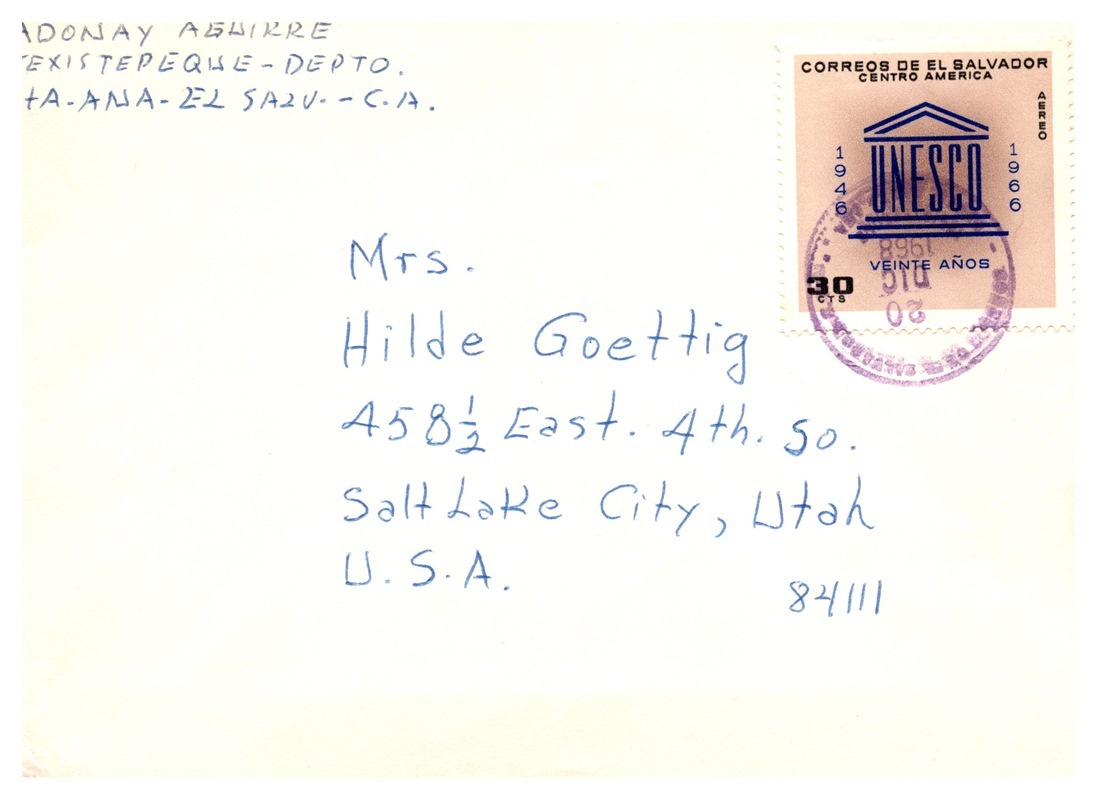 ADONAY AGUIRRE
TEXISTEPEQUE-DEPTO.
TA-ANA-EL SALV.-C.A.
CORREOS DE EL SALVADOR
CENTRO AMERICA
AEREO
1946
UNESCO
1966
VEINTE AÑOS
30
CTS
1968
DIC
20
Mrs.
Hilde Goettig
458½ East. 4th. So.
Salt Lake City, Utah
U.S.A.
84111